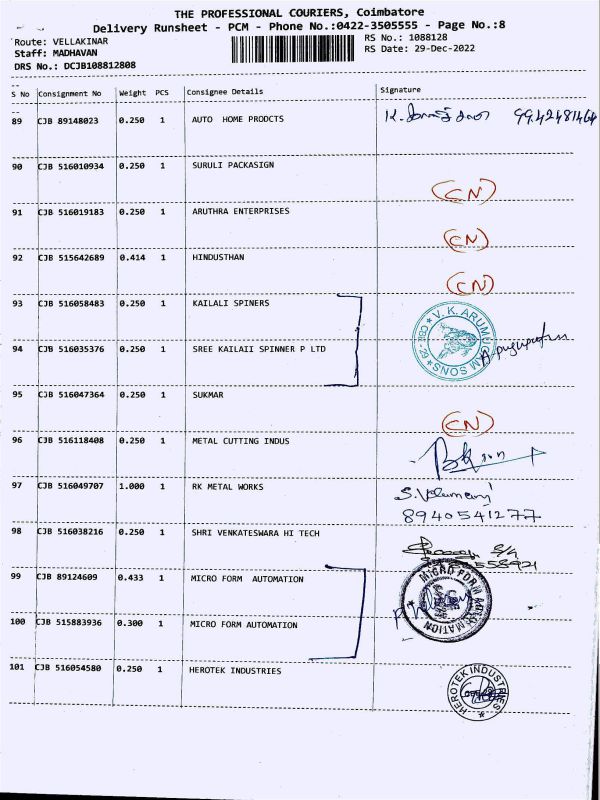 THE PROFESSIONAL COURIERS, Coimbatore
Delivery Runsheet - PCM - Phone No.:0422-3505555 - Page No.:8
Route: VELLAKINAR
RS No.: 1088128
Staff: MADHAVAN
RS Date: 29-Dec-2022
DRS No.: DCJB108812808
S No Consignment No Weight PCS Consignee Details Signature
89 CJB 89148023 0.250 1 AUTO HOME PRODCTS
90 CJB 516010934 0.250 1 SURULI PACKASIGN (CN)
91 CJB 516019183 0.250 1 ARUTHRA ENTERPRISES (CN)
92 CJB 515642689 0.414 1 HINDUSTHAN (CN)
93 CJB 516058483 0.250 1 KAILALI SPINERS V.K. ARUMUGAM SONS CBE-29
94 CJB 516035376 0.250 1 SREE KAILAII SPINNER P LTD
95 CJB 516047364 0.250 1 SUKMAR (CN)
96 CJB 516118408 0.250 1 METAL CUTTING INDUS
97 CJB 516049707 1.000 1 RK METAL WORKS
8940541277
98 CJB 516038216 0.250 1 SHRI VENKATESWARA HI TECH
99 CJB 89124609 0.433 1 MICRO FORM AUTOMATION MICRO FORM AUTOMATION
100 CJB 515883936 0.300 1 MICRO FORM AUTOMATION
101 CJB 516054580 0.250 1 HEROTEK INDUSTRIES HEROTEK INDUSTRIES